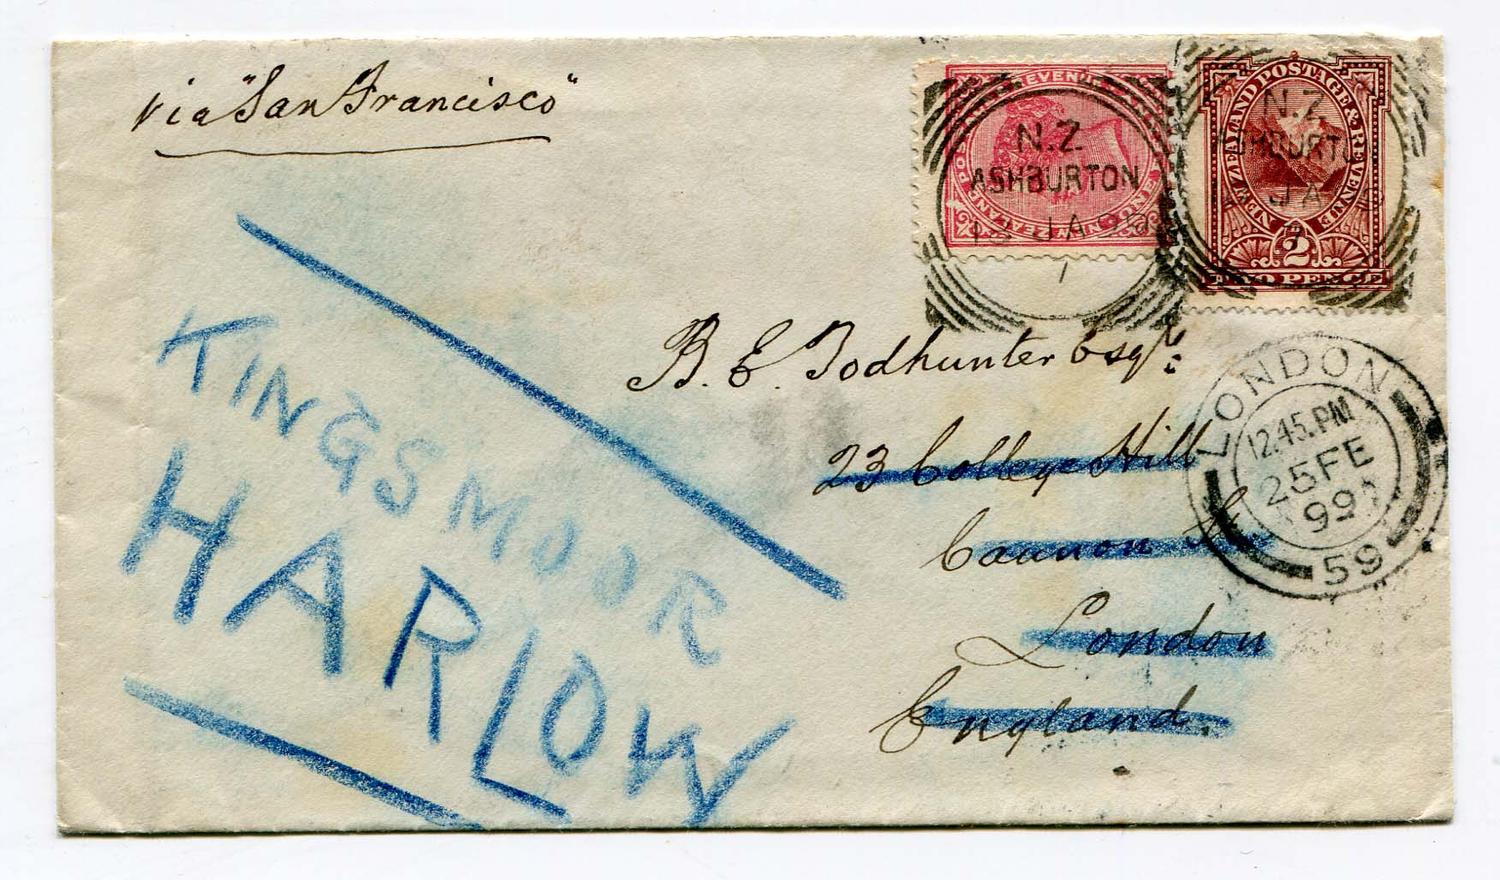 via "San Francisco"
REVENUE
N.Z
ASHBURTON
JA
1
NEW ZEALAND POSTAGE & REVENUE
N.Z
JA
2
TWO PENCE
B. E. Todhunter Esqre
23 College Hill
Cannon St
London
England.
LONDON
12.45.PM
25 FE
99
59
KINGSMOOR
HARLOW